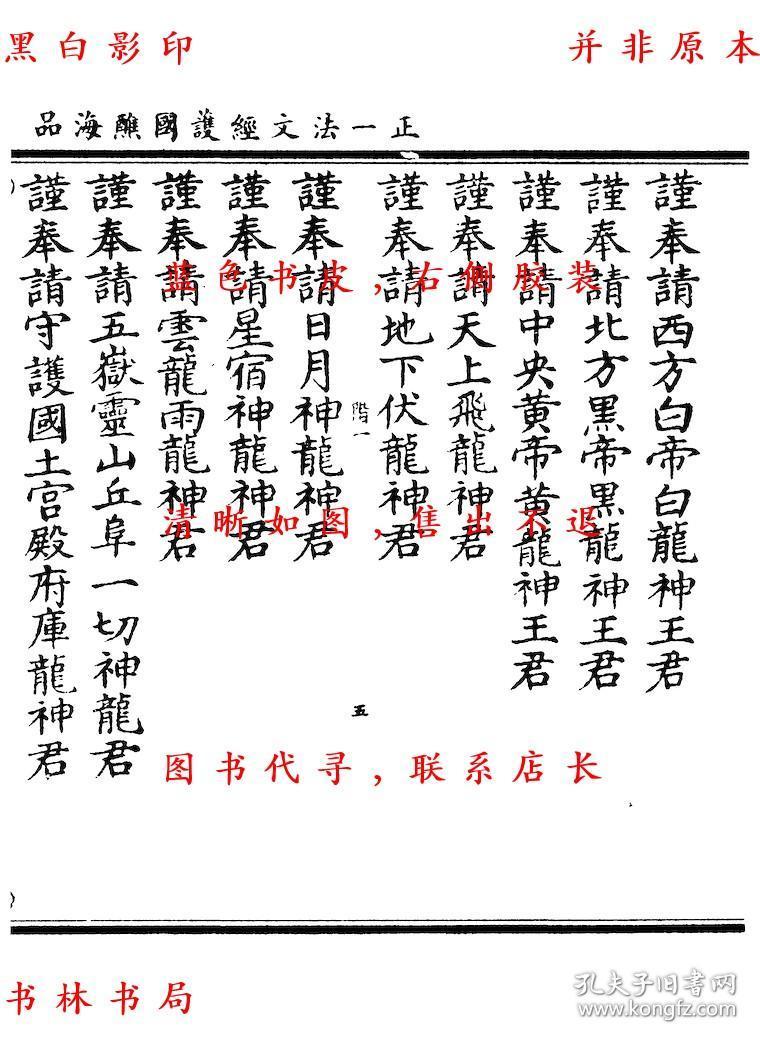 黑白影印
并非原本
正一法文經護國醮海品
謹奉請西方白帝白龍神王君
謹奉請北方黑帝黑龍神王君
謹奉請中央黃帝黃龍神王君
謹奉請天上飛龍神君
謹奉請地下伏龍神君
階一
五
謹奉請日月神龍神君
謹奉請星宿神龍神君
謹奉請雲龍雨龍神君
謹奉請五嶽靈山丘阜一切神龍君
謹奉請守護國土宮殿府庫龍神君
蓝色书皮,右侧胶装
清晰如图,售出不退
图书代寻,联系店长
书林书局
孔夫子旧书网
www.kongfz.com